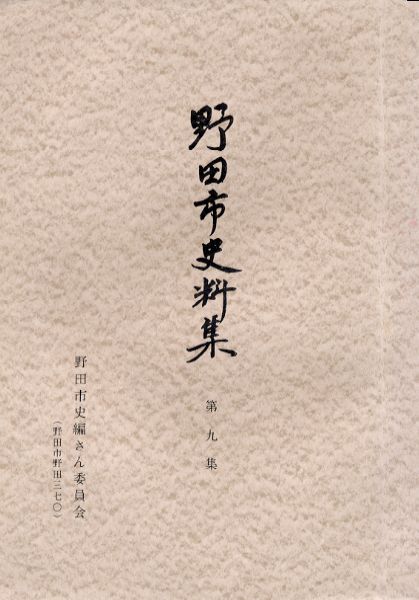 野田市史料集
第九集
野田市史編さん委員会
(野田市野田三七〇)